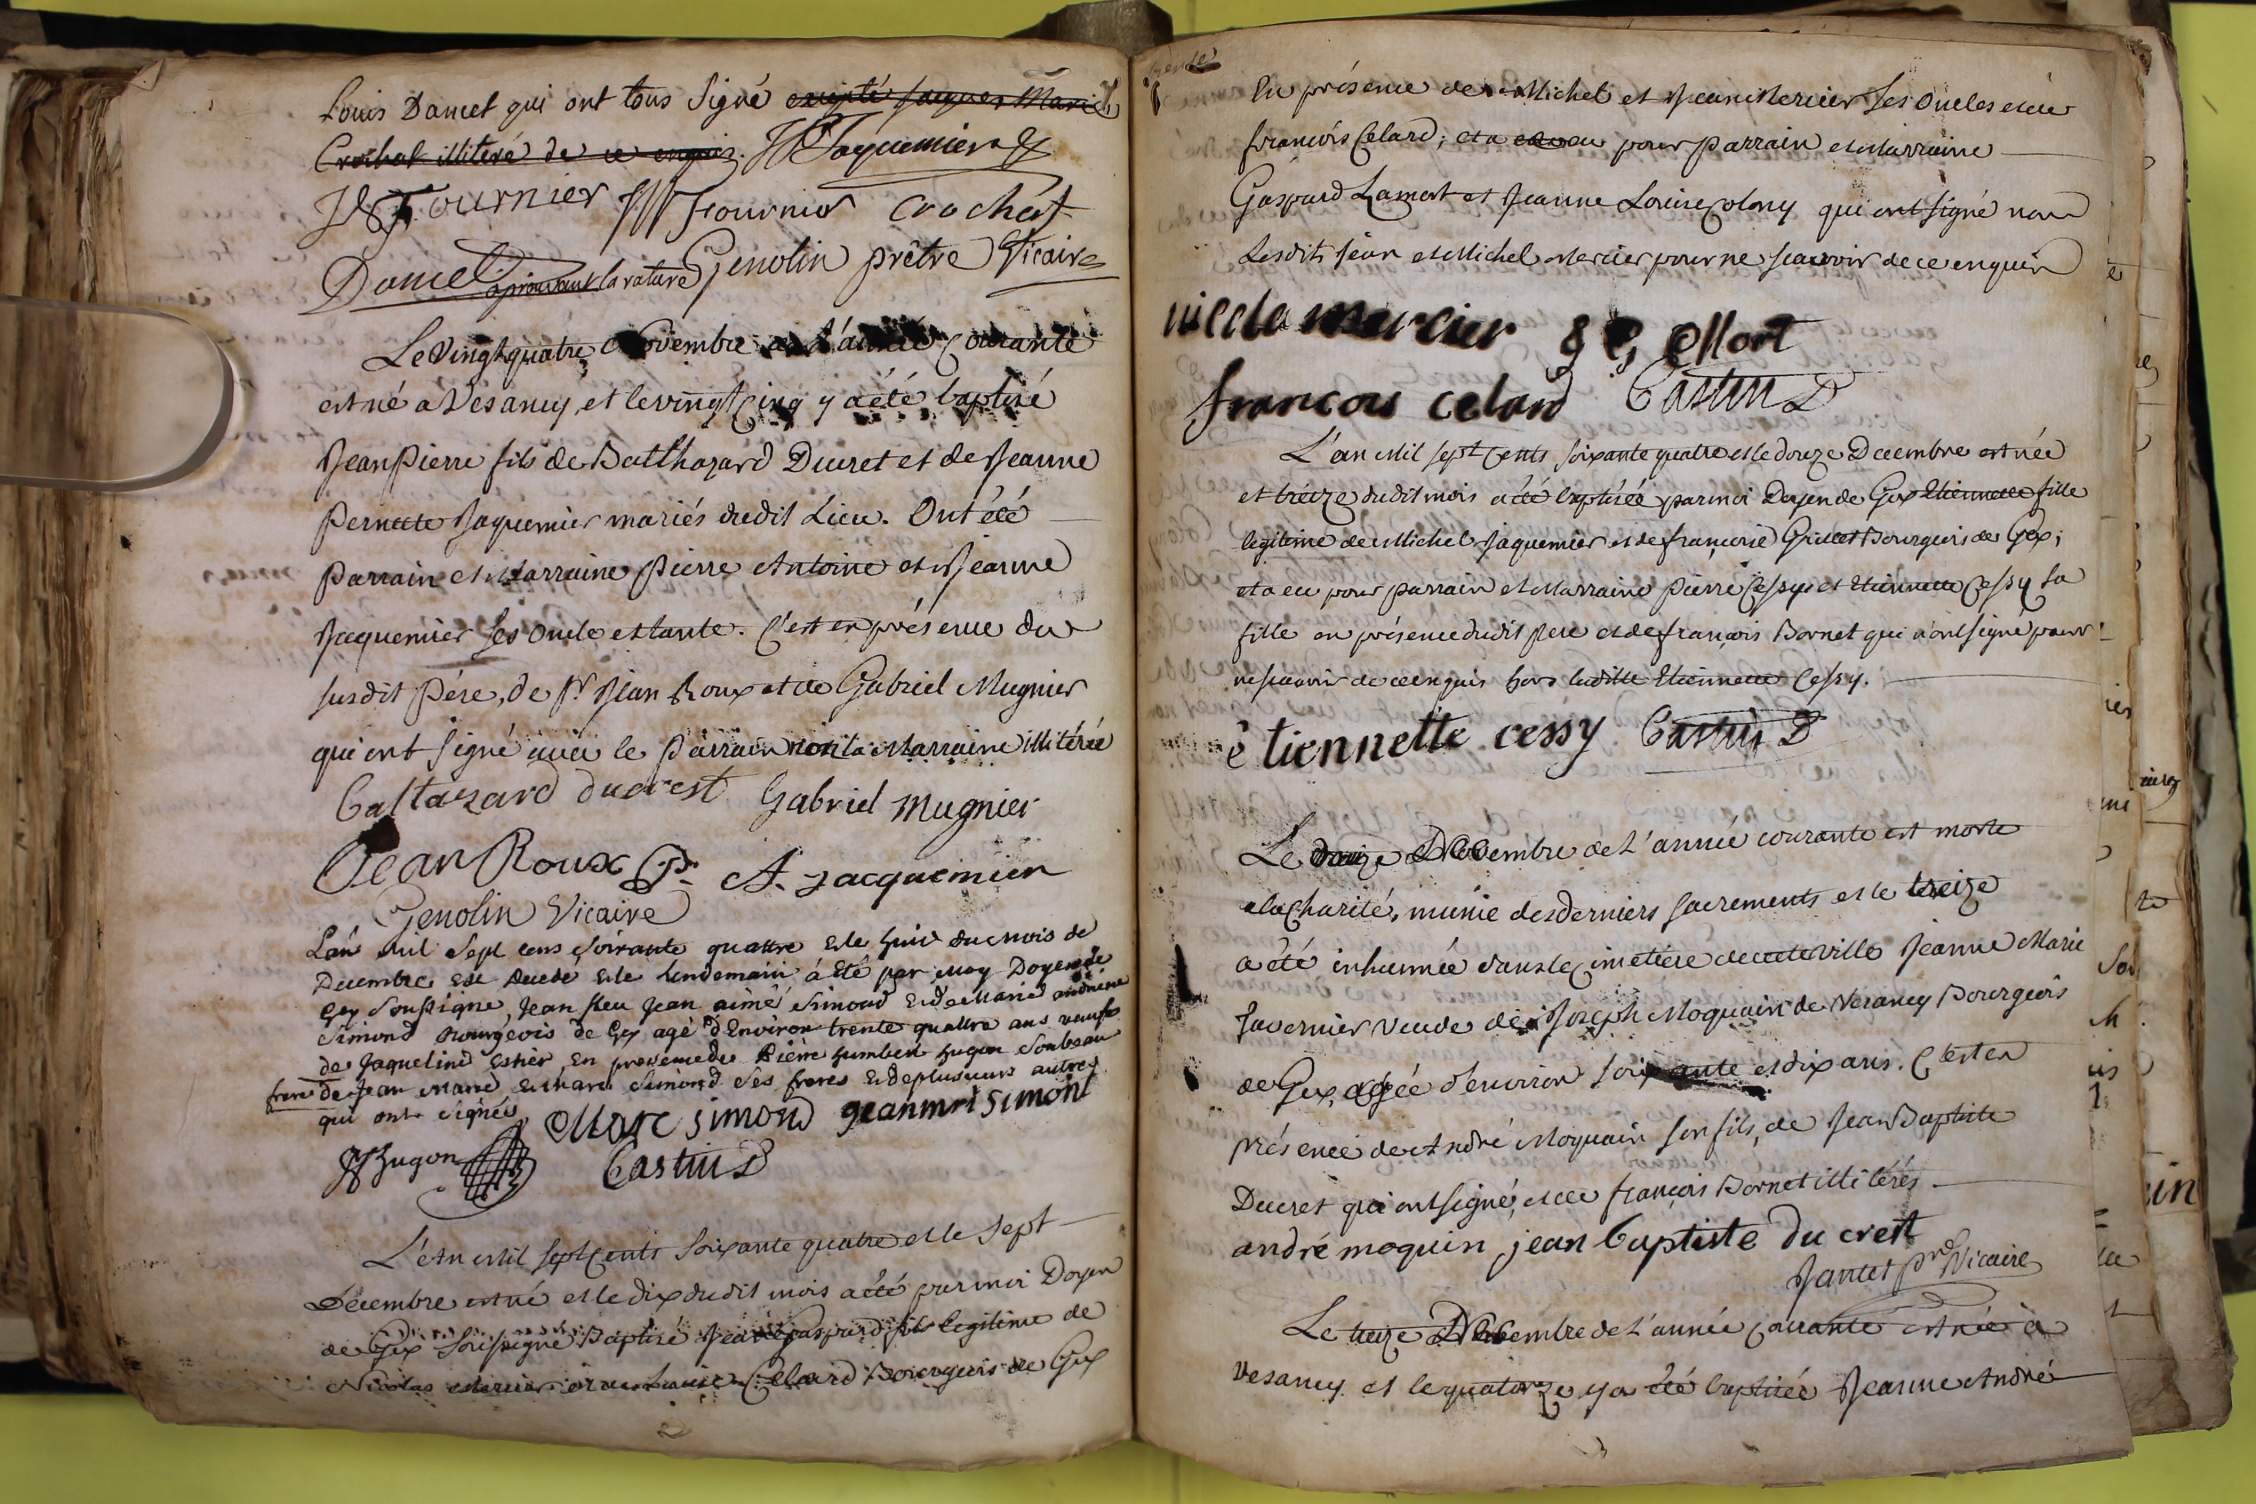 Louis Dancet qui ont tous signé excepté Jacques Marie
Crochat illitéré de ce enquis. Jaquemier
Fournier Fournier Crochat
Dancet aprouvant la rature Genolin prêtre Vicaire
Le vingt quatre Novembre de L'année courante
est né a Vesancy, et le vingt cinq y a été baptisé
Jean Pierre fils de Balthazard Ducret et de Jeanne
Pernette Jaquemier mariés dudit Lieu. Ont été
Parrain et Marraine Pierre Antoine et Jeanne
Jaquemier ses oncle et tante. C'est en présence du
susdit Pére, de Sr. Jean Roux et de Gabriel Mugnier
qui ont signé avec le Parrain non la Marraine illitérée
Baltazard ducrest Gabriel Mugnier
Jean Roux A. Jacquemier
Genolin Vicaire
Lan mil sept cens soixante quattre et le huit du mois de
Decembre est decede et le lendemain á été par moy Doyen de
Gex soussigne, Jean feu Jean aimé Simond et de Marie
Simond Bourgeois de Gex agé d'Environ trente quattre ans
de Jaqueline En presence de Pierre humbert hugon
frere de Jean Marie et Marc Simond ses freres et de plusieurs autres
qui ont signés Marc Simond Jeanmri Simont
Hugon Castin D
L'An Mil sept Cents soixante quatre et le sept
Décembre est né et le dix dudit mois a été par moi Doyen
de Gex soussigné Baptisé Jean Gaspard fils legitime de
Nicolas Mercier et de Louise Celard Bourgeois de Gex
En présence de Michel et Jean Mercier ses oncles et de
françois Celard; et a eu pour Parrain et Marraine
Gaspard Lamort et Jeanne Louise Colony qui ont signé non
Lesdits Jean et Michel Mercier pour ne sçavoir de ce enquis
nicola mercier Mort
françois celard Castin D
L'an Mil sept Cents soixante quatre et le douze Decembre est née
et treize dudit mois a été baptisée par moi Doyen de Gex Etiennette fille
legitime de Michel Jaquemier et de françoise Bourgeois de Gex;
et a eu pour parrain et Marraine Pierre Cessy et Etiennette Cessy sa
fille en présence dudit Pere et de françois Bornet qui n'ont signé pour
ne sçavoir de ce enquis hors ladite Etiennette Cessy.
étiennette cessy Castin D
Le Décembre de L'année courante est morte
a la Charité, munie des derniers sacrements et le treize
a été inhumée dans le Cimetiere de cette Ville Jeanne Marie
Tavernier veuve de Joseph Moquain de Vesancy Bourgeois
de Gex, agée d'environ soixante et dix ans. C'est en
présence de André Moquain son fils, de Jean Baptiste
Ducret qui ont signé, et de françois Bornet illitérés.
andré moquin jean baptiste du crest
Jantet Vicaire
Le treize Décembre de L'année courante est née à
Vesancy et le quatorze y a été baptisée Jeanne André